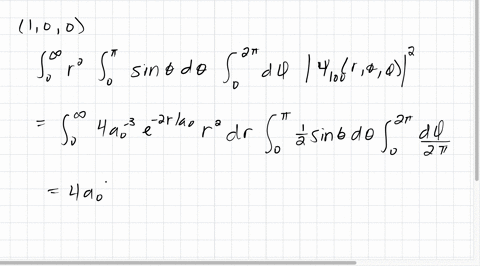 (1,0,0)
∫₀^∞ r² ∫₀^π sinθdθ ∫₀^2π dφ |Ψ₁₀₀(r,θ,φ)|²
= ∫₀^∞ 4a₀⁻³ e^(-2r/a₀) r² dr ∫₀^π ½ sinθdθ ∫₀^2π dφ/2π
= 4a₀